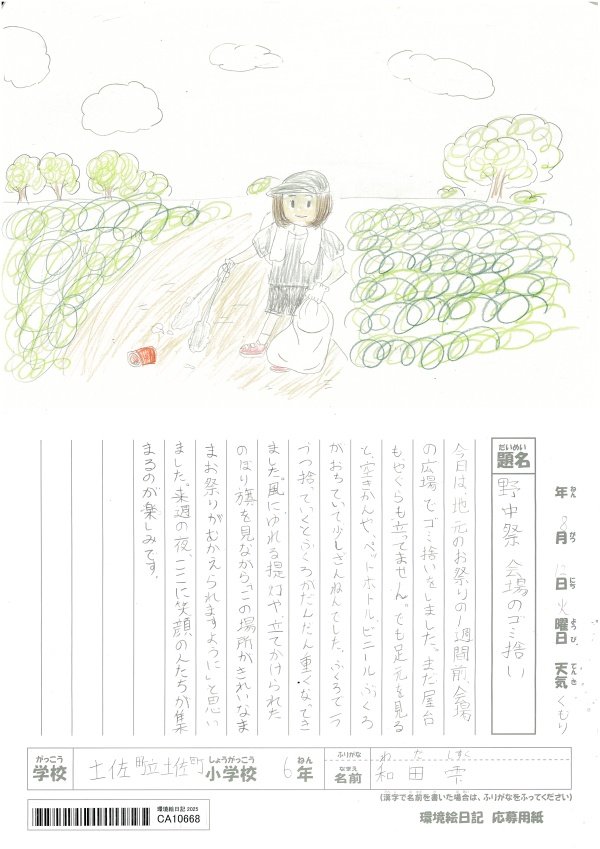 だいめい
題名
野中祭 会場のゴミ捨い
年 ねん
8月 がつ
12日 にち
火曜日 ようび
天気 てんき くもり
今日は、地元のお祭りの1週間前、会場
の広場でゴミ捨いをしました。まだ屋台
もやぐらも立ってません。でも足元を見る
と、空きかんや、ペットボトル、ビニールぶくろ
がおちていて少しざんねんでした。ふくろで一つ
づつ捨っていくとふくろがだんだん重くなってき
ました。風にゆれる提灯や、立てかけられた
のぼり旗を見ながら「この場所がきれいなま
まお祭りがむかえられますように」と思い
ました。来週の夜、ここに笑顔の人たちが集
まるのが楽しみです。
がっこう
学校
土佐町立土佐町
しょうがっこう
小学校
6年 ねん
ふりがな
わだ しずく
なまえ
名前
和田 雫
(漢字で名前を書いた場合は、ふりがなをふってください)
環境絵日記 2025
CA10668
環境絵日記 応募用紙